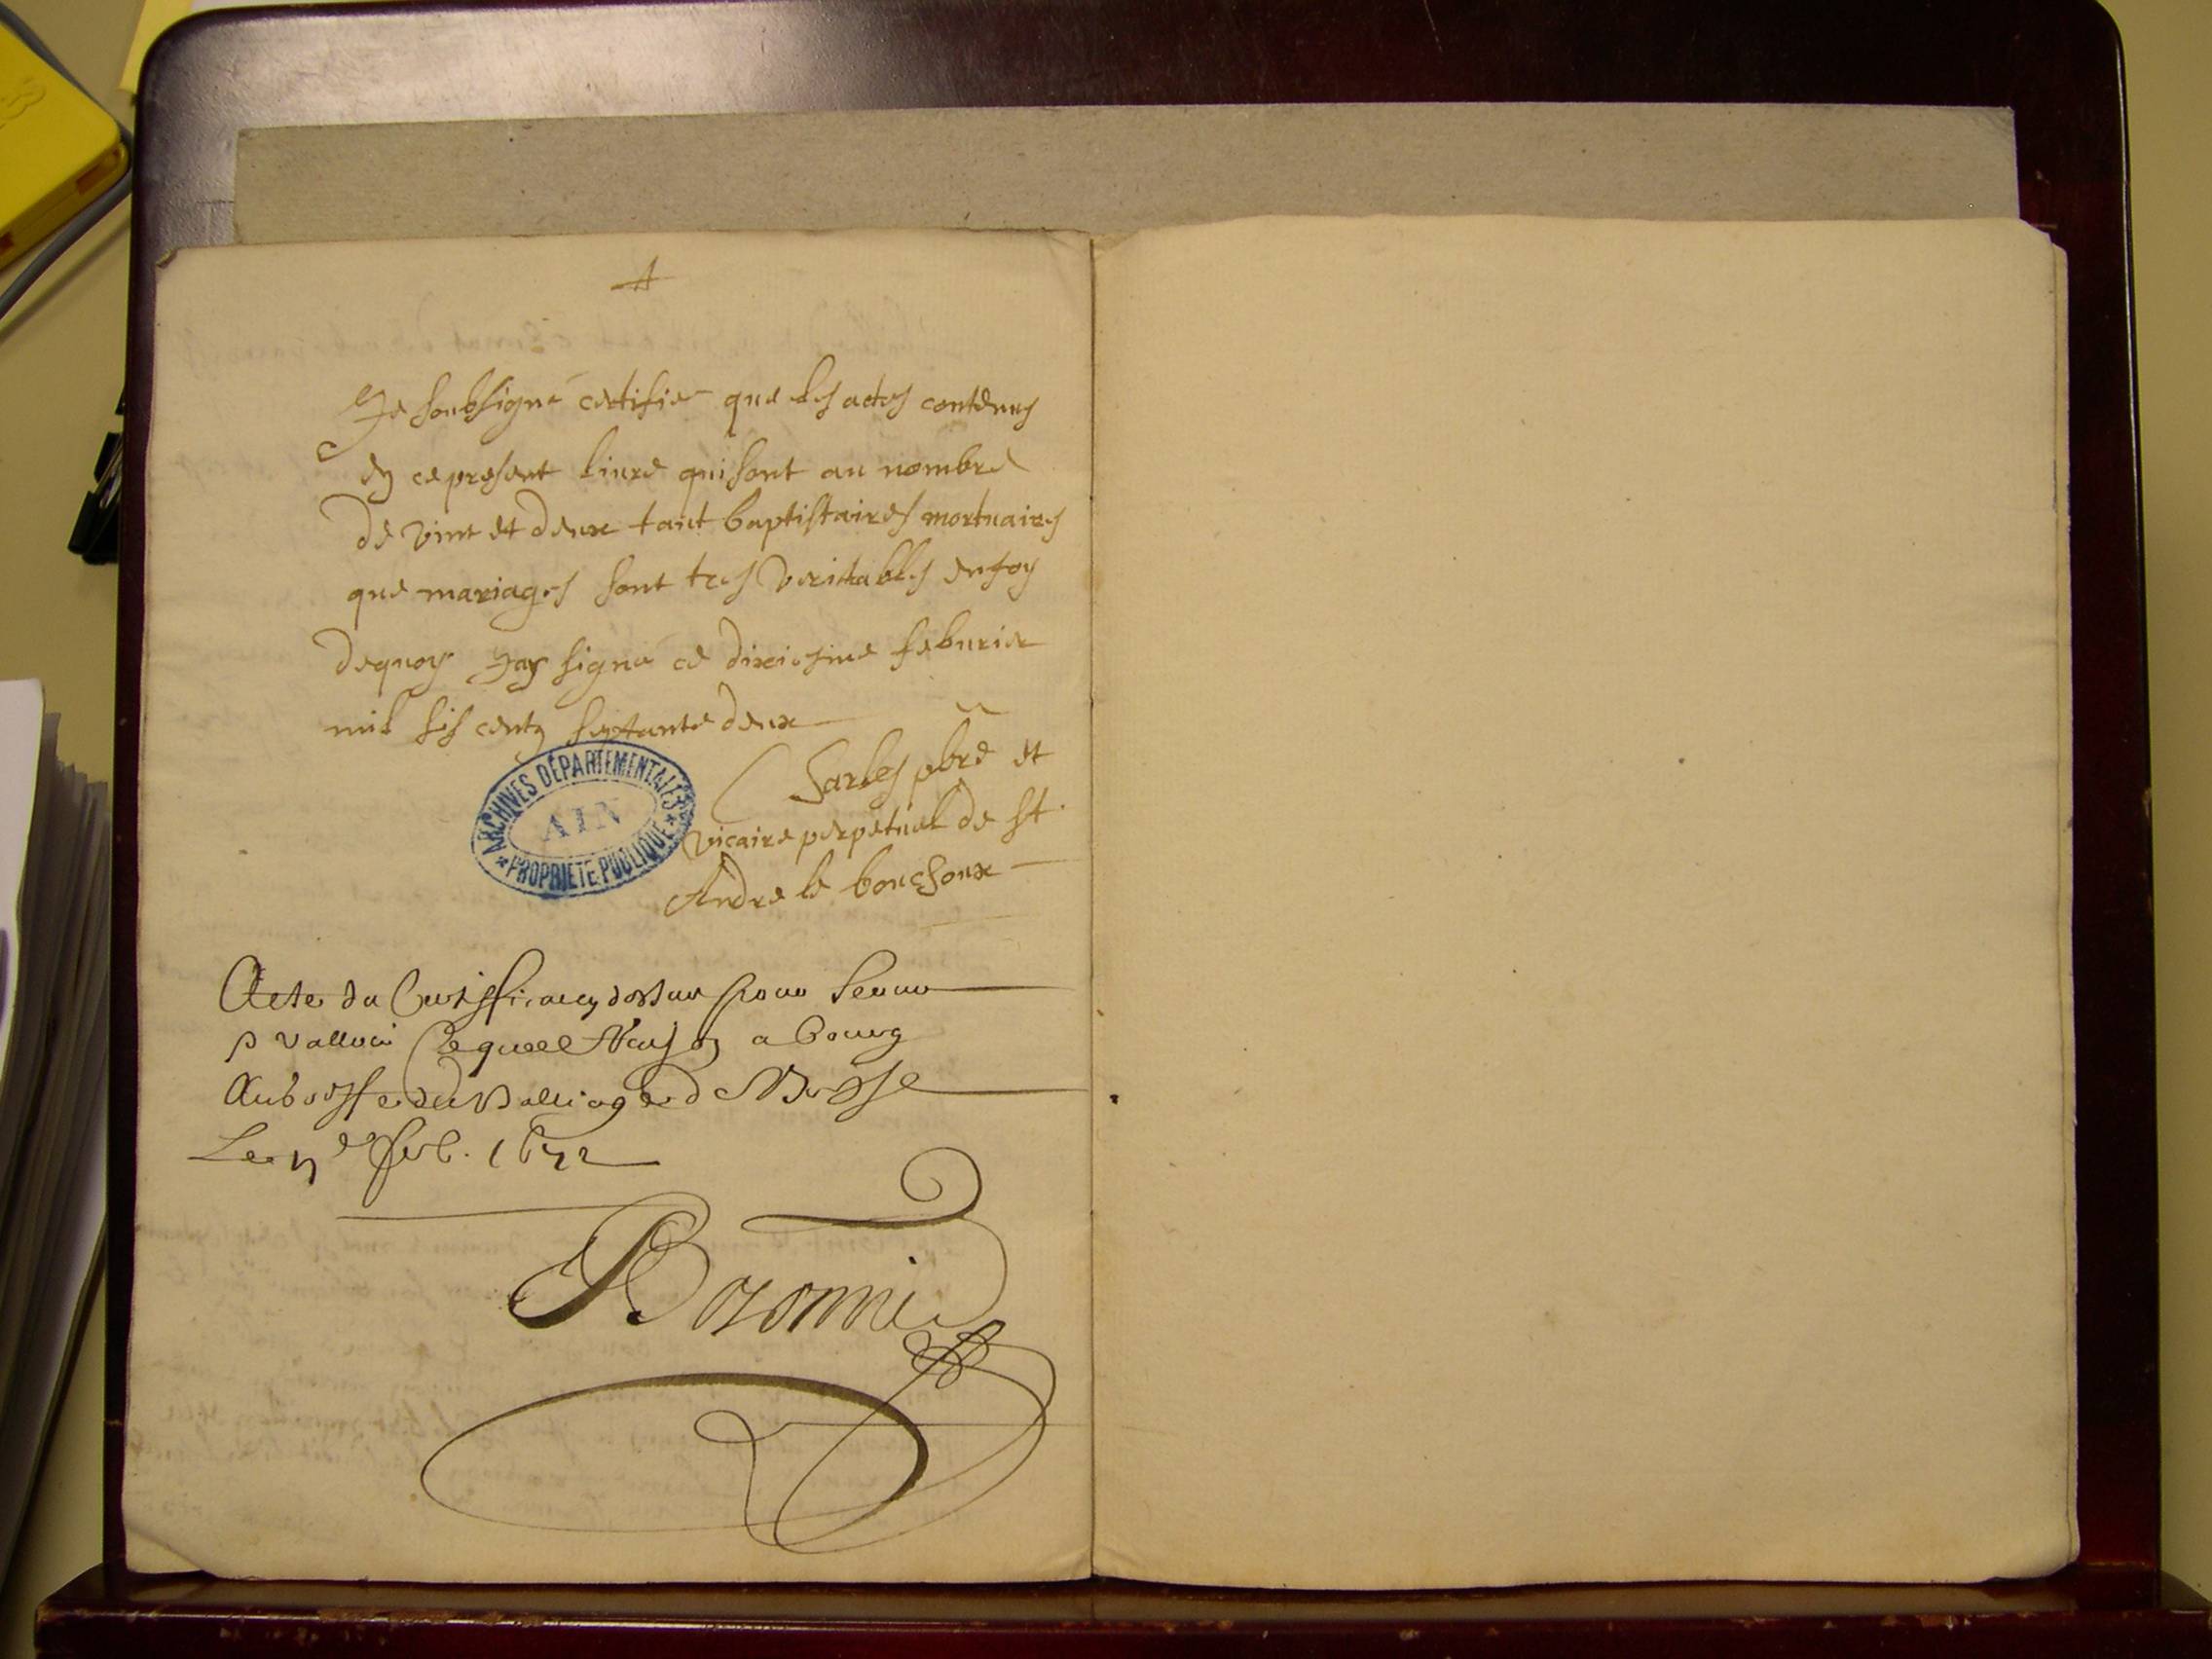 Je soubsigné certifie que les actes contenus
en ce present livre qui sont au nombre
de vint et deux tant baptistaires mortuaires
que mariages sont tres veritables en foy
dequoy jay signé ce dixiesme feburier
mil sis centz septante deux
Sarles pbre et
vicaire perpetuel de st
Andre le bouchoux
ARCHIVES DÉPARTEMENTALES
AIN
* PROPRIETE PUBLIQUE *
Acte du pour
a Bourg
Au du Balliage de
Le feb. 1672